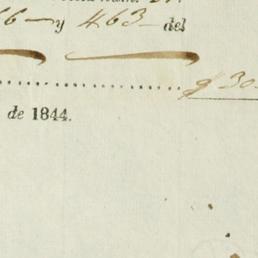 66 — y 463 — del
$ 30
de 1844.